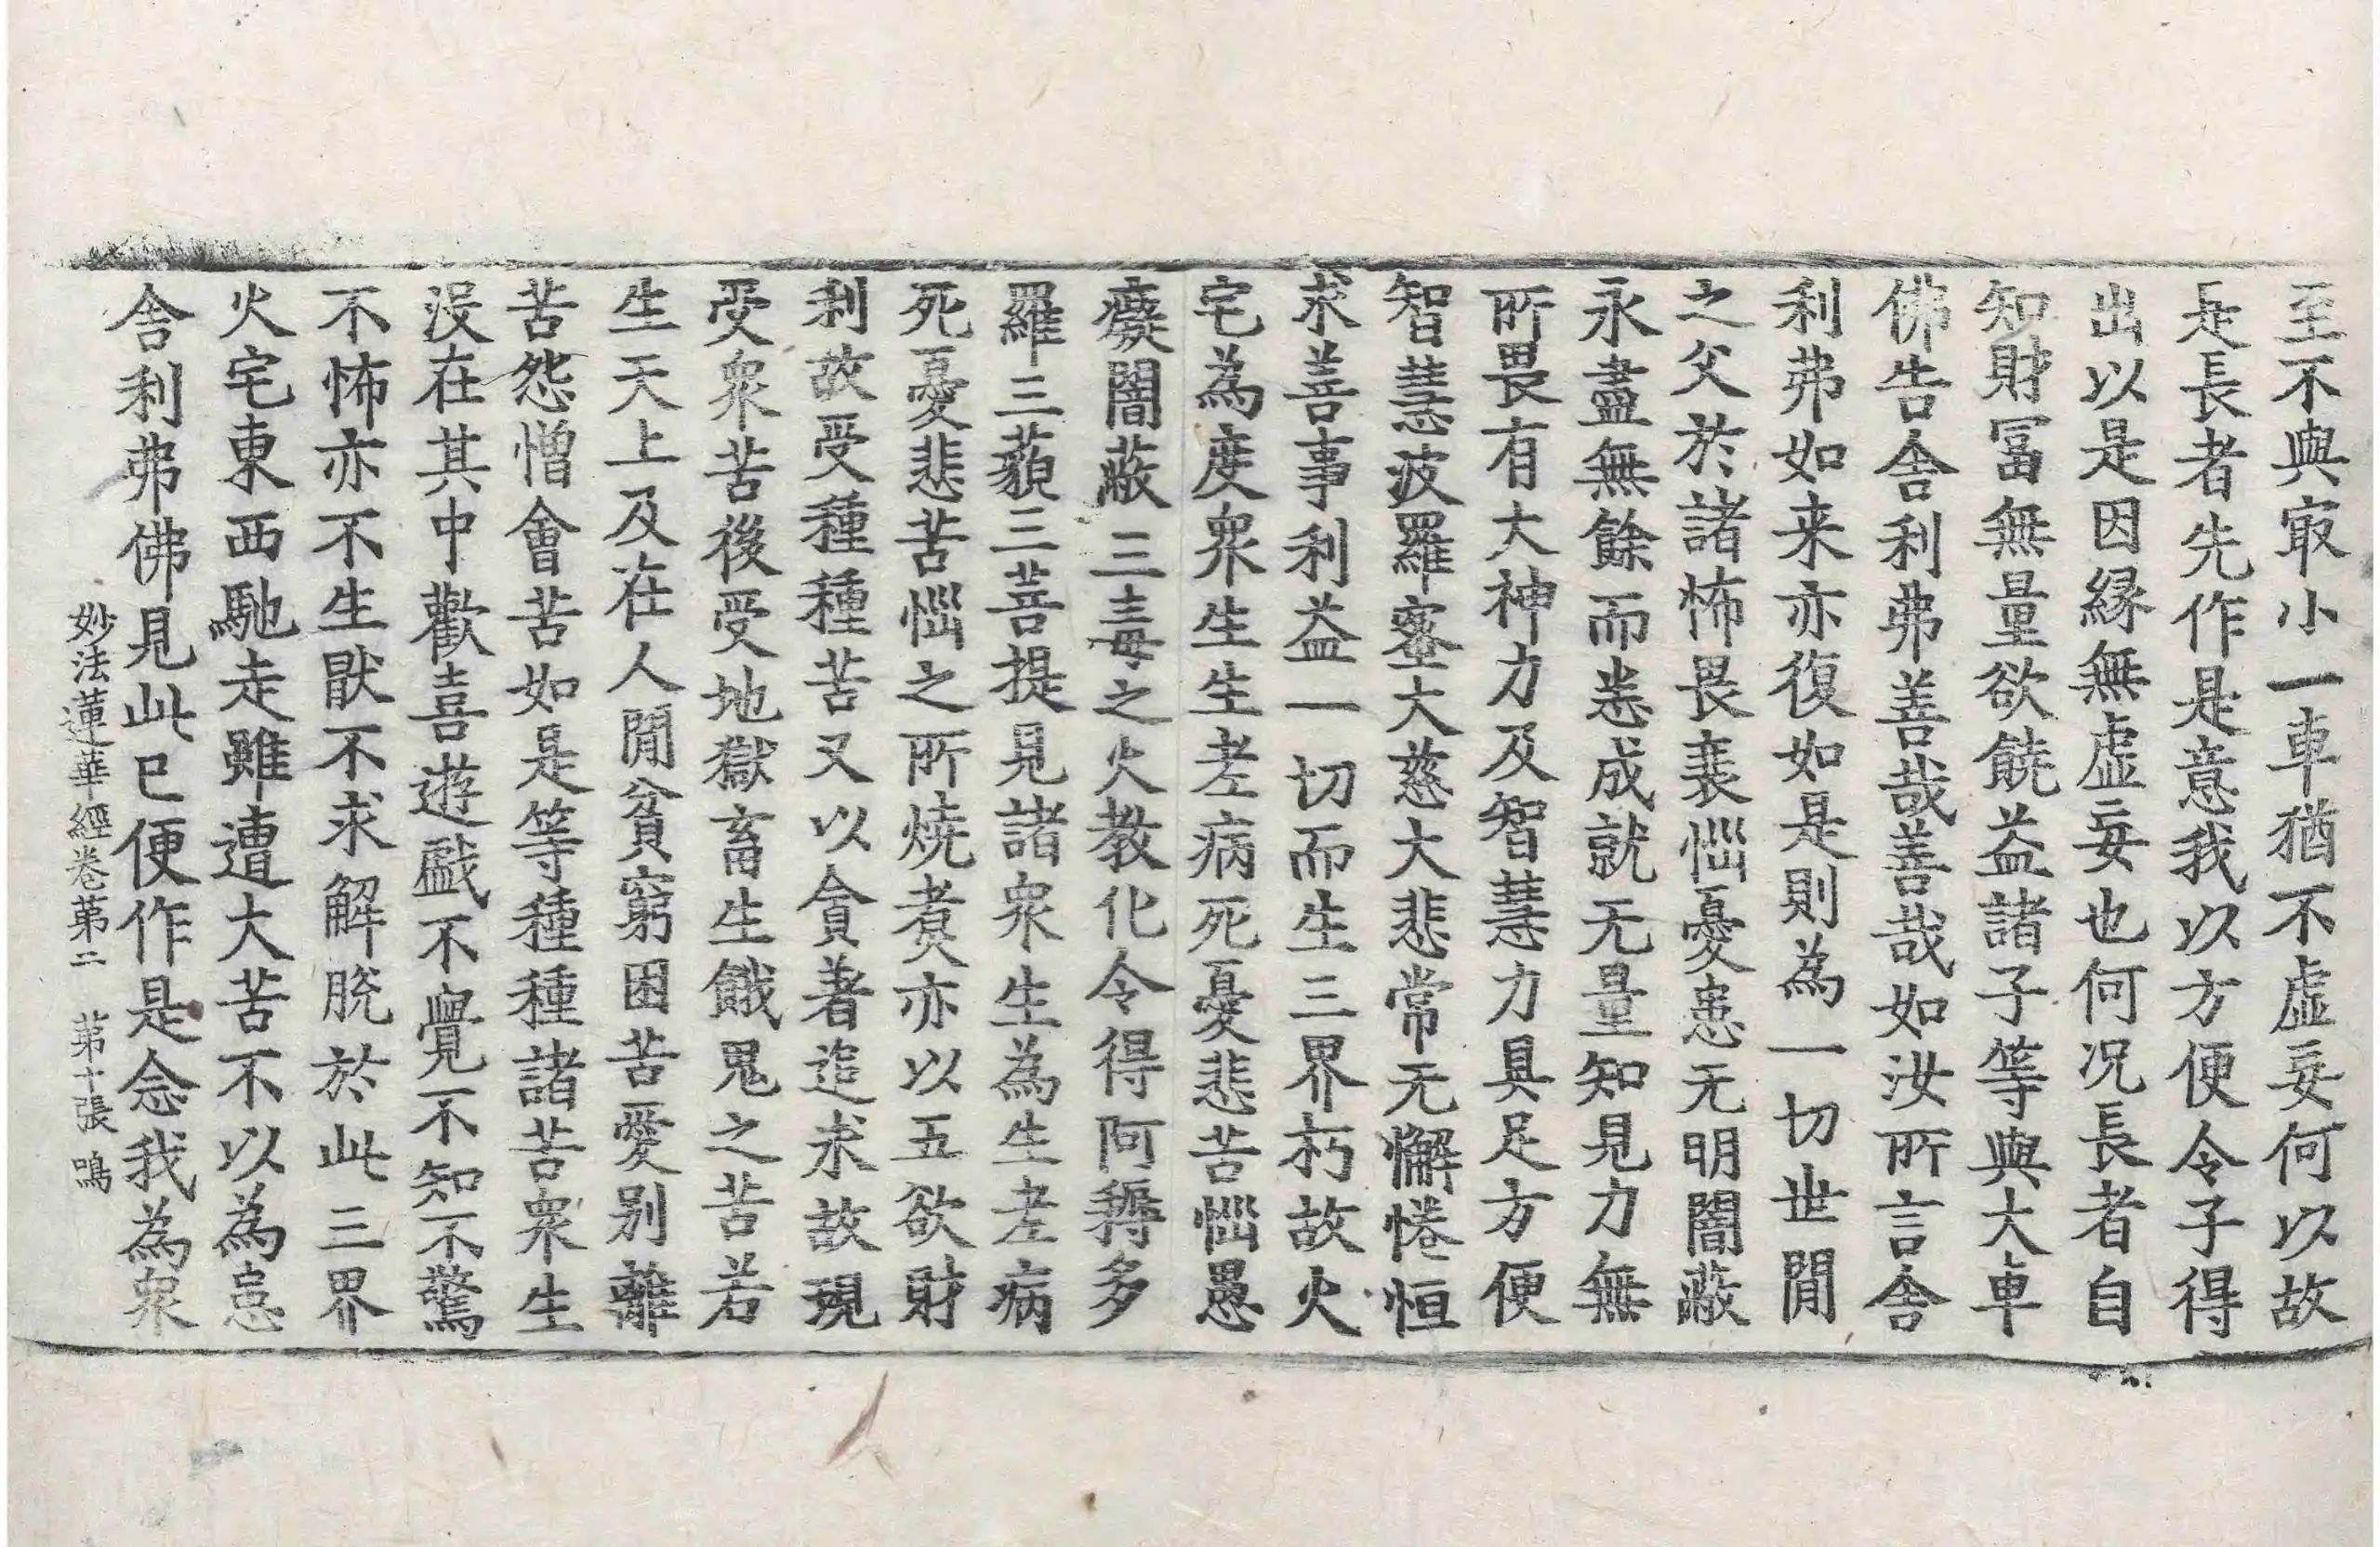 至不與冣小一車猶不虛妄何以故
是長者先作是意我以方便令子得
出以是因緣無虛妄也何况長者自
知財冨無量欲饒益諸子等與大車
佛告舍利弗善哉善哉如汝所言舍
利弗如来亦復如是則為一切世閒
之父於諸怖畏衰惱憂患无明闇蔽
永盡無餘而悉成就无量知見力無
所畏有大神力及智慧力具足方便
智慧波羅蜜大慈大悲常无懈惓恒
求善事利益一切而生三界朽故火
宅為度衆生生老病死憂悲苦惱愚
癡闇蔽三毒之火教化令得阿耨多
羅三藐三菩提見諸衆生為生老病
死憂悲苦惱之所燒煑亦以五欲財
利故受種種苦又以貪著追求故現
受衆苦後受地獄畜生餓鬼之苦若
生天上及在人閒貧窮困苦愛别離
苦怨憎會苦如是等種種諸苦衆生
没在其中歡喜遊戱不覺不知不驚
不怖亦不生猒不求解脫於此三界
火宅東西馳走雖遭大苦不以為患
舍利弗佛見此已便作是念我為衆
妙法蓮華經卷第二 第十張 鳴